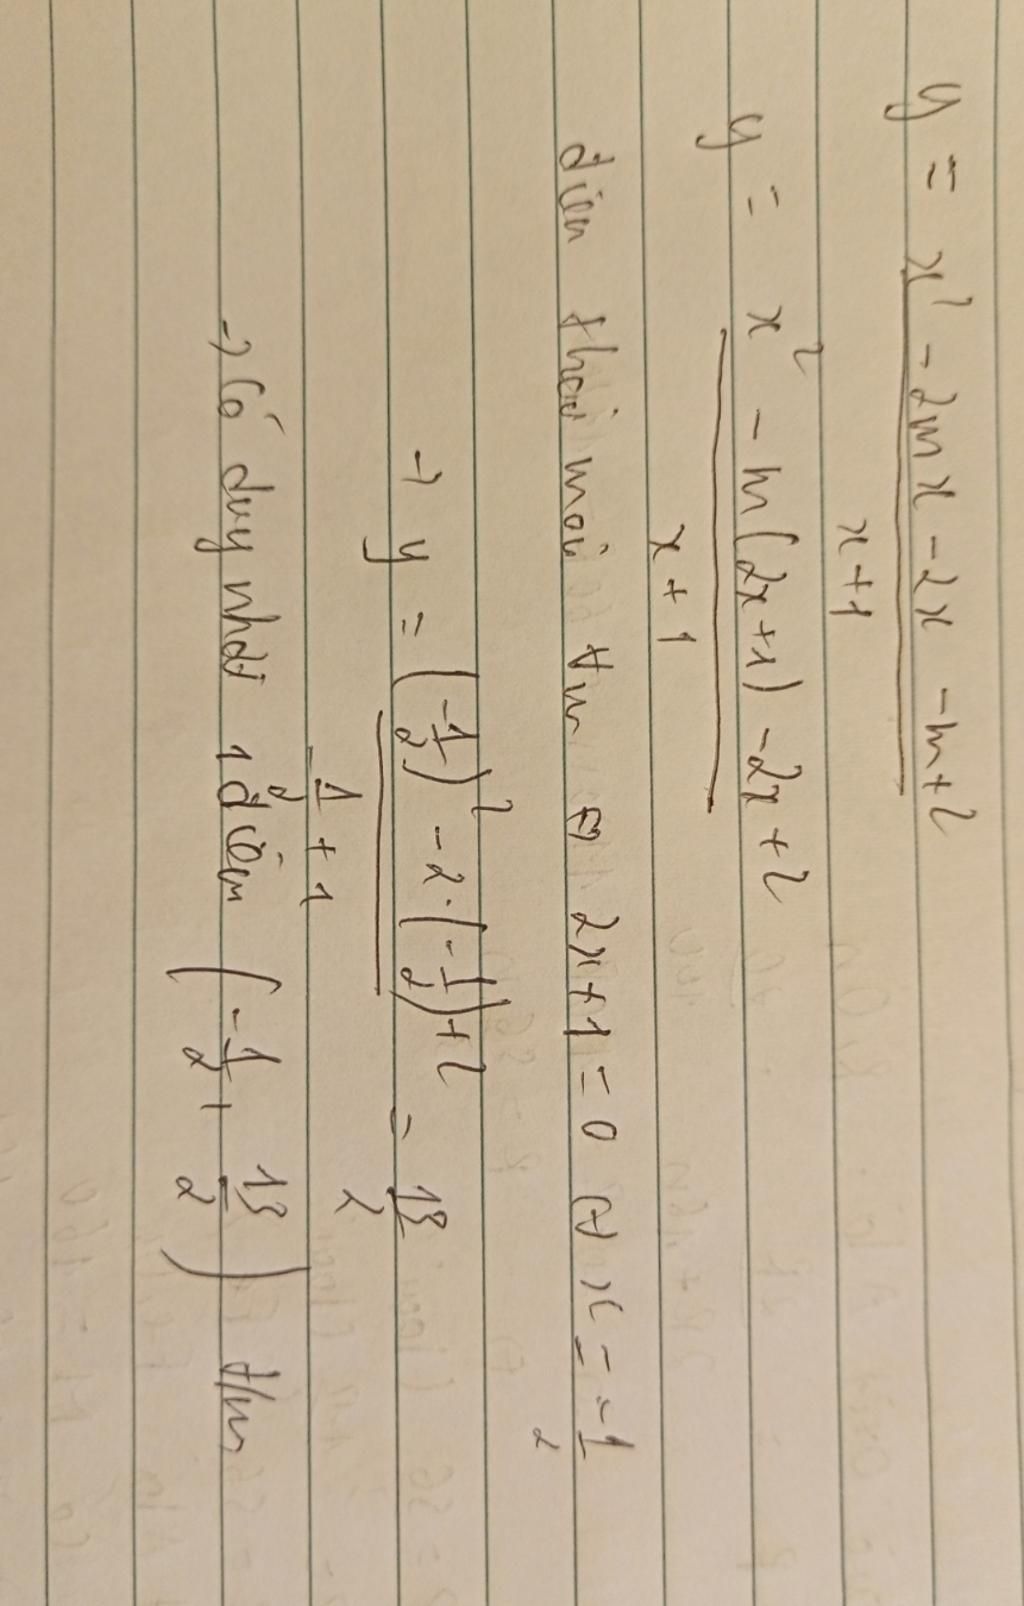 y = x² - 2mx - 2x - m + 2
x + 1
y = x² - m(2x+1) - 2x + 2
x + 1
điểm thoả mãn ∀m ⇔ 2x+1 = 0 ⇔ x = -1/2
→ y = (-1/2)² - 2·(-1/2) + 2 = 13/2
-1/2 + 1
→ Có duy nhất 1 điểm (-1/2, 13/2) t/m